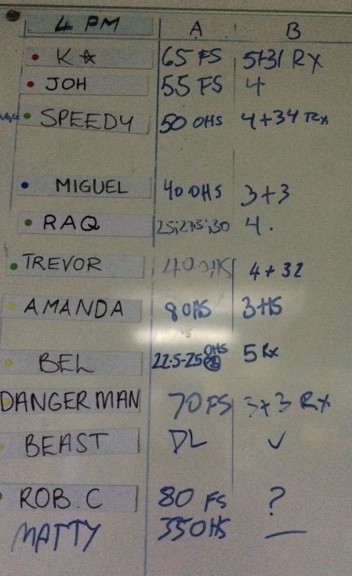 4 PM A B
K☆ 65 FS 5+31 Rx
JOH 55 FS 4
SPEEDY 50 OHS 4+34 Rx
MIGUEL 40 OHS 3+3
RAQ 4.
TREVOR 40 OHS 4+32
AMANDA 80HS 3HS
BEL 22.5-25 OHS 5 Rx
DANGERMAN 70 FS 5+3 Rx
BEAST DL ✓
ROB.C 80 FS ?
MATTY 350HS —